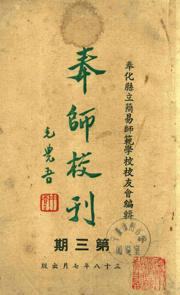 奉化縣立簡易師範學校校友會編輯
奉師校刊
第三期
三十八年七月出版